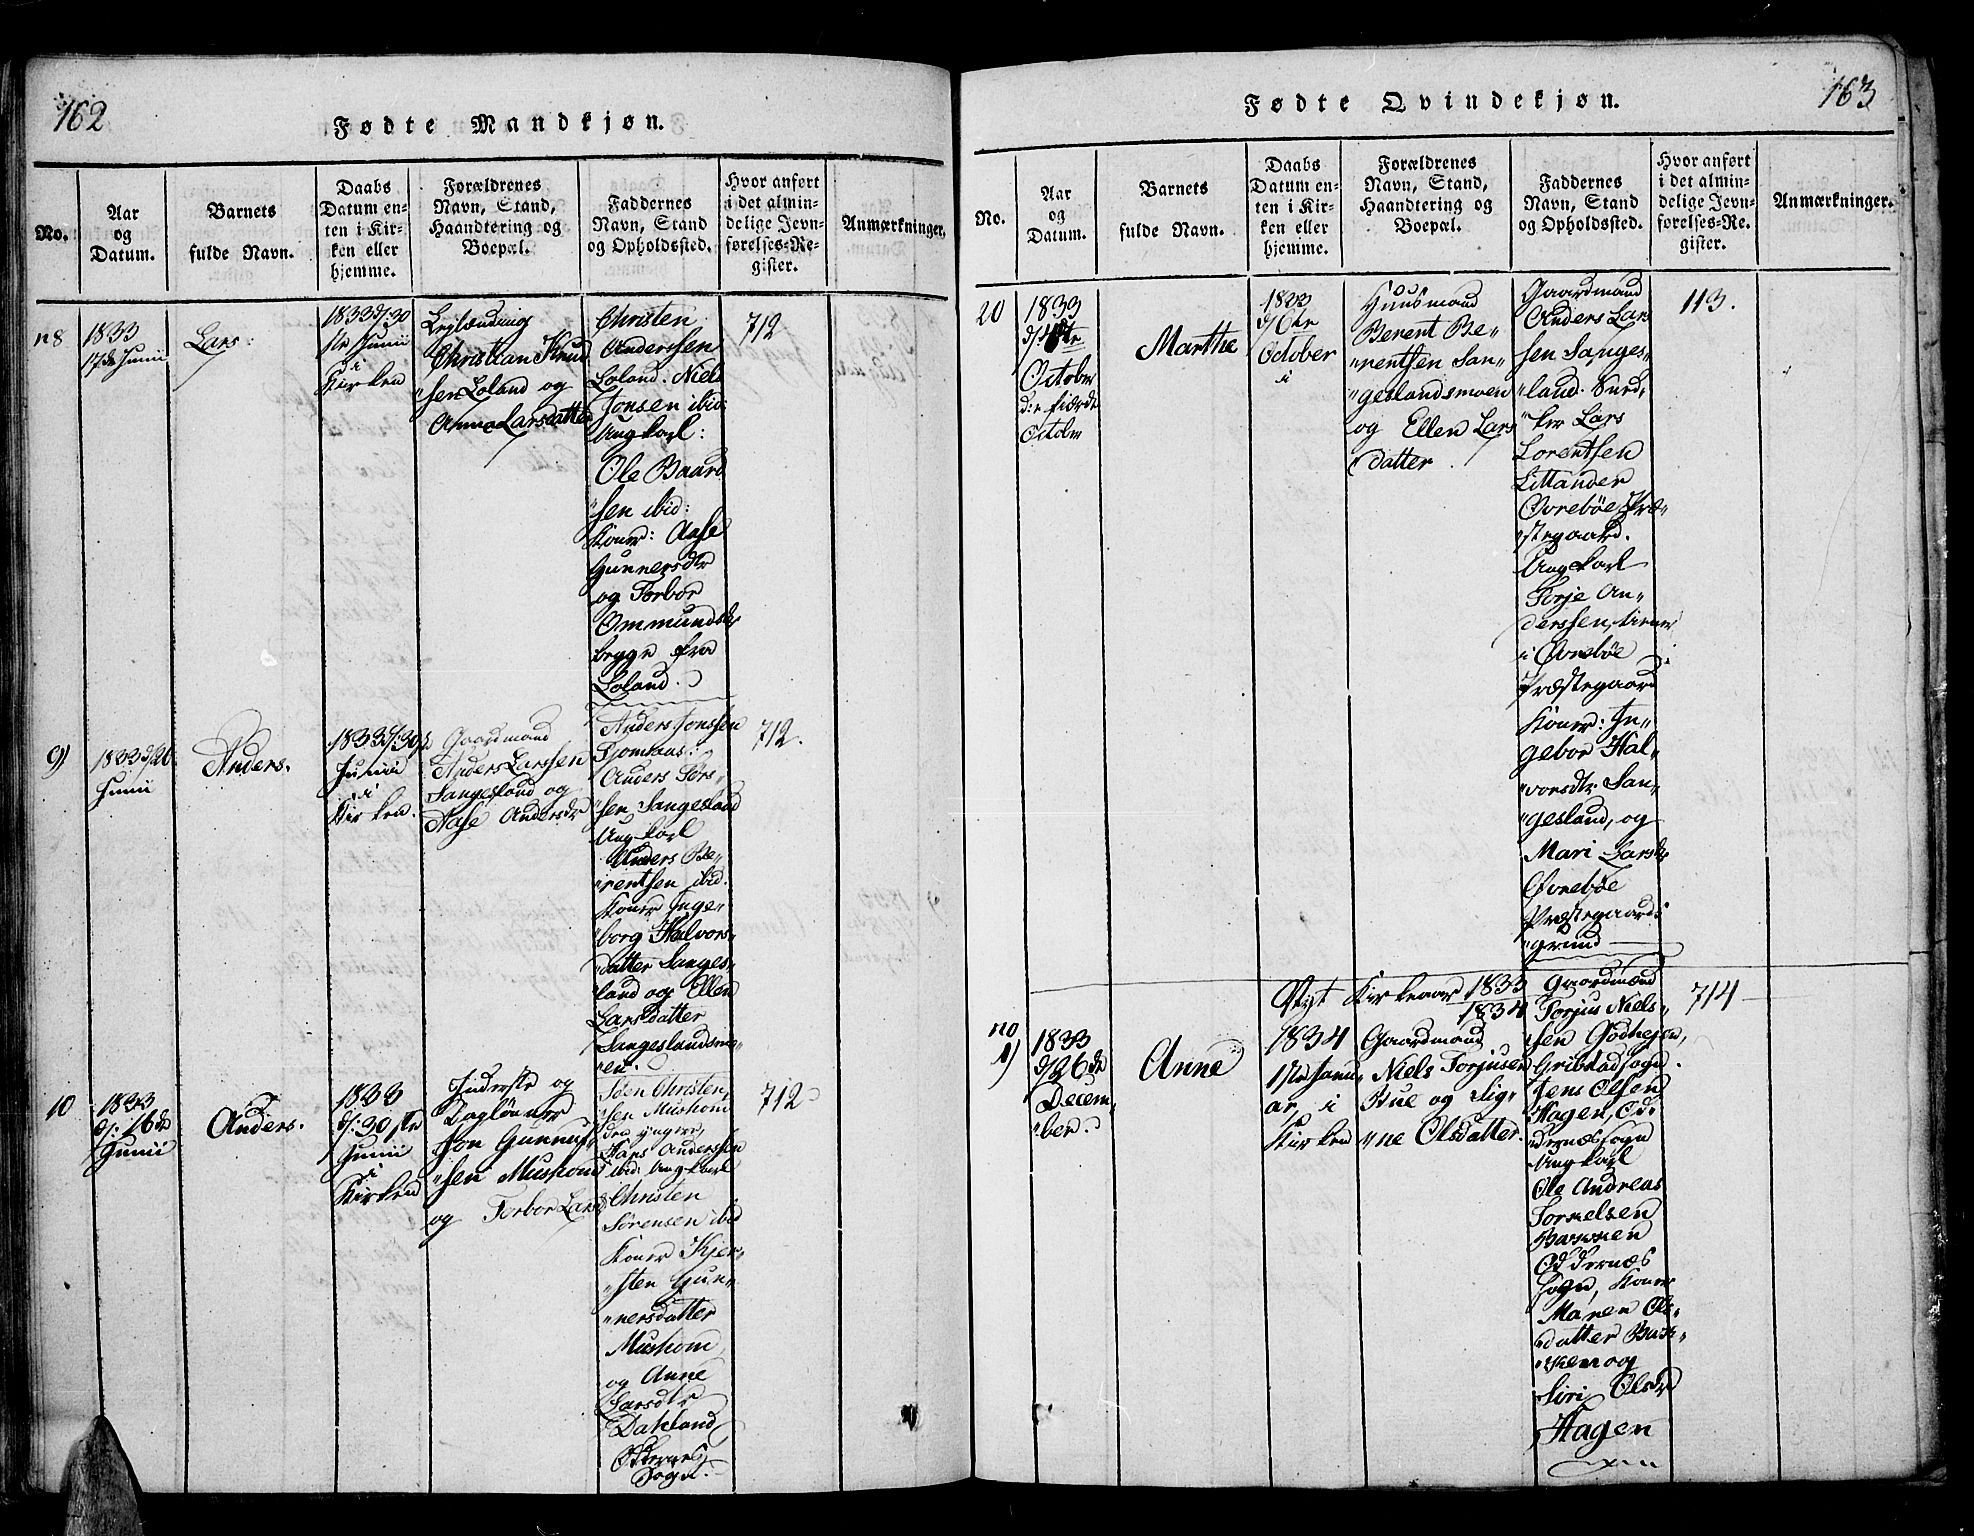 162
Fødte Mandkjøn.
No.
Aar
og
Datum.
Barnets
fulde Navn.
Daabs
Datum en-
ten i Kir-
ken eller
hjemme.
Forældrenes
Navn, Stand,
Haandtering og
Boepæl.
Faddernes
Navn, Stand
og Opholdssted.
Hvor anført
i det almin-
delige Jevn-
førelses-Re-
gister.
Anmærkninger.
n 8
1833
17de Junii
Lars.
1833 d: 30
ste Junii
i
Kirken
Leylænding
Christian Knud
"sen Loland og
Anna Larsdatter
Christen
Anderssen
Loland. Niels
Jonsen ibid:
Ungkarl:
Ole Baard
"sen ibid:
Koner: Aase
Gunnersdtr
og Torbor
Ommundsdtr
begge fra
Loland.
712
9)
1833 d/20
Junii
Anders.
1833 d: 30te
Junii
i
Kirken.
Gaardmand
Anders Larssen
Sangesland og
Aase Andersdtr
Anders Jonssen
Anders Tørs-
"sen Sangesland
Ungkarl
Anders Be-
"rentsen ibid.
Koner Inge-
"borg Halvors-
"datter Sanges-
"land og Ellen
Larsdatter
Sangeslandsmo-
"en.
712.
10
1833
d: 16de
Junii
Anders.
1833
d: 30te
Junii
i
Kirken
Inderste og
Daglønner
Jon Gunnuf-
"sen Mushom
og Torbor Larsd
Christen-
"sen Mushom
den yngere,
Hans Anderssen
ibid: Ungkarl
Christen
Sørensen ibid
Koner Kjer-
"sten Gun-
"nersdatter
Mushom
og Anne
Larsdtr
Dahland
Oddernes
Sogn.
712
163
Fødte Qvindekjøn.
No.
Aar
og
Datum.
Barnets
fulde Navn.
Daabs
Datum en-
ten i Kir-
ken eller
hjemme.
Forældrenes
Navn, Stand,
Haandtering og
Boepæl.
Faddernes
Navn, Stand
og Opholdssted.
Hvor anført
i det almin-
delige Jevn-
førelses-Re-
gister.
Anmærkninger.
20
1833
d/4de
October
d: fierde
October
Marthe
1833
d/6te
October
i
Huusmand
Berent Be-
"rentsen San-
"geslandsmoen
og Ellen Lars
"datter.
Gaardmand
Anders Lars
sen Sanges-
"land.
Lars
Lorentsen
Littander
Øvrebøe Præ-
"stegaard.
Ungkarl
Torje An-
derssen, tiener
i Øvrebøe
Præstegaard
Koner: In-
gebor Hal-
"vorsdtr. San-
"gesland, og
Mari Larsdtr
Øvrebøe
Præstegaards
"grund
113.
Nyt Kirkeaar 1833
1834
no
1)
1833
d/26de
Decem-
"ber.
Anne
1834
1ste Janu-
ar, i
Kirken
Gaardmand
Niels Torjusen
Bue og Sig-
"ne Olsdatter.
Gaardmænd
Torjus Niels-
"sen Godhejen,
Gribstad sogn.
Jens Olsen
Hagen, Od-
"dernes sogn
Ungkarl
Ole Andreas
Tornelsen
Oddernæs
Sogn, Koner
Maren Ols-
"datter Bak-
"ken og
Siri Olsdtr
Hagen
714